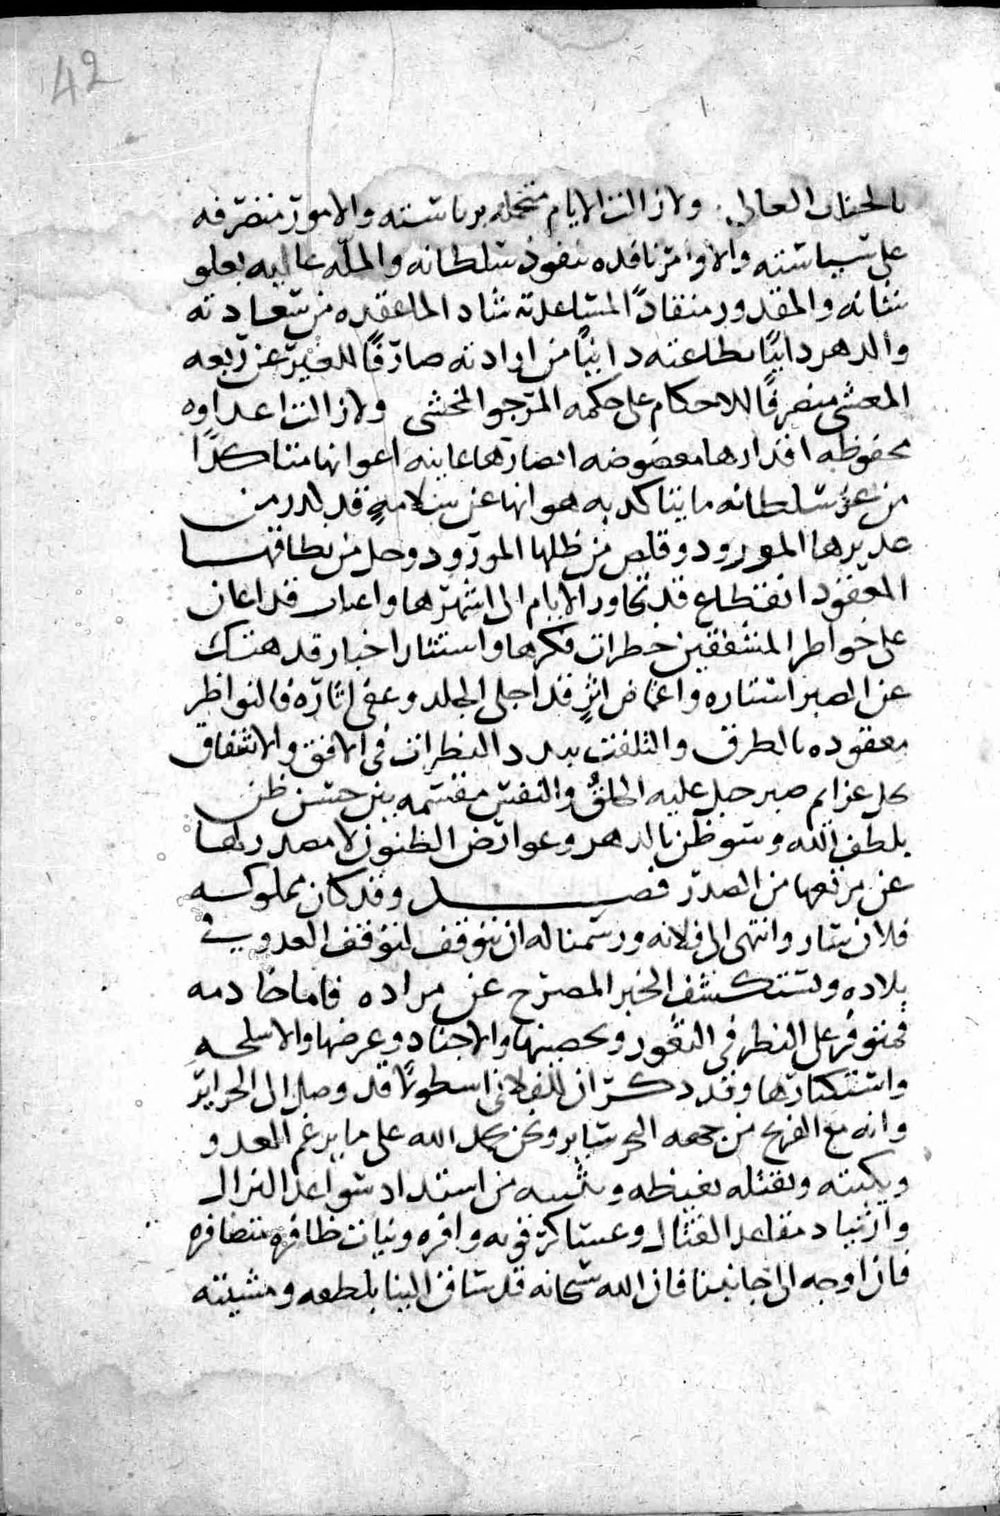 42
بالجناب العالي ولا زالت الايام متجمله برياسته والامور متصرفه
على سياسته والاوامر نافذه بنفوذ سلطانه والمله عاليه بعلو
شانه والمقدور منقادًا لمساعدته شاد الما عقده من سعادته
والدهر دايبًا بطاعته دانيًا من ارادته صارفًا للغير عن ربعه
المغشى متصرفًا للاحكام على حكمه المرجو المخشى ولا زالت اعداوه
محفوظه اقدارها مغضوضه ابصارها عاينه اعوانها متاكدًا
من عز سلطانه ما يتاكد به هوانها عن سلامةٍ قد لدر من
غديرها المورود وقلص من ظلها المورود وحل من نطاقها
المعقود انقطاع قد تجاوز الايام الى اشهرها واغباب قد اعان
على خواطر المشفقين خطرات فكرها واستتار اخبار قد هتك
عن الصبر استاره واغماض اثرٍ قد اجلى الجلد وعفى اثاره فالنواظر
معقوده بالطرق والتلفت يردد النظرات في الافق والاشفاق
يحل عزايم صبر جبل عليه الخلقُ والنفس مقتسمه بين حسن ظن
بلطف الله وسو ظن بالدهر وعوارض الظنون لا مصدر لها
عن مرتعها من الصدر فصل وقد كان مملوكه
فلان سار وانتهى الى فلانه ورسمنا له ان يتوقف لتوقف العدو في
بلاده وتستكشف الخبر المصرح عن مراده فاما خادمه
فمتوفر على النظر في الثغور وتحصينها والاجناد وعرضها والاسلحه
واستكثارها وقد ذكر ان للفلاني اسطولًا قد وصل الى الجزاير
وانه مع الفرنج من جهه البحر ساير ونحن بحمد الله على ما يرغم العدو
ويكبته ويقتله بغيظه ويثبيه من استداد سواعد النزال
وارتياد مقاعد القتال وعساكر قويه وافره ونيات ظافره متضافره
فان اوجه الى جانبنا فان الله سبحانه قد ساقه الينا بلطفه ومشيته